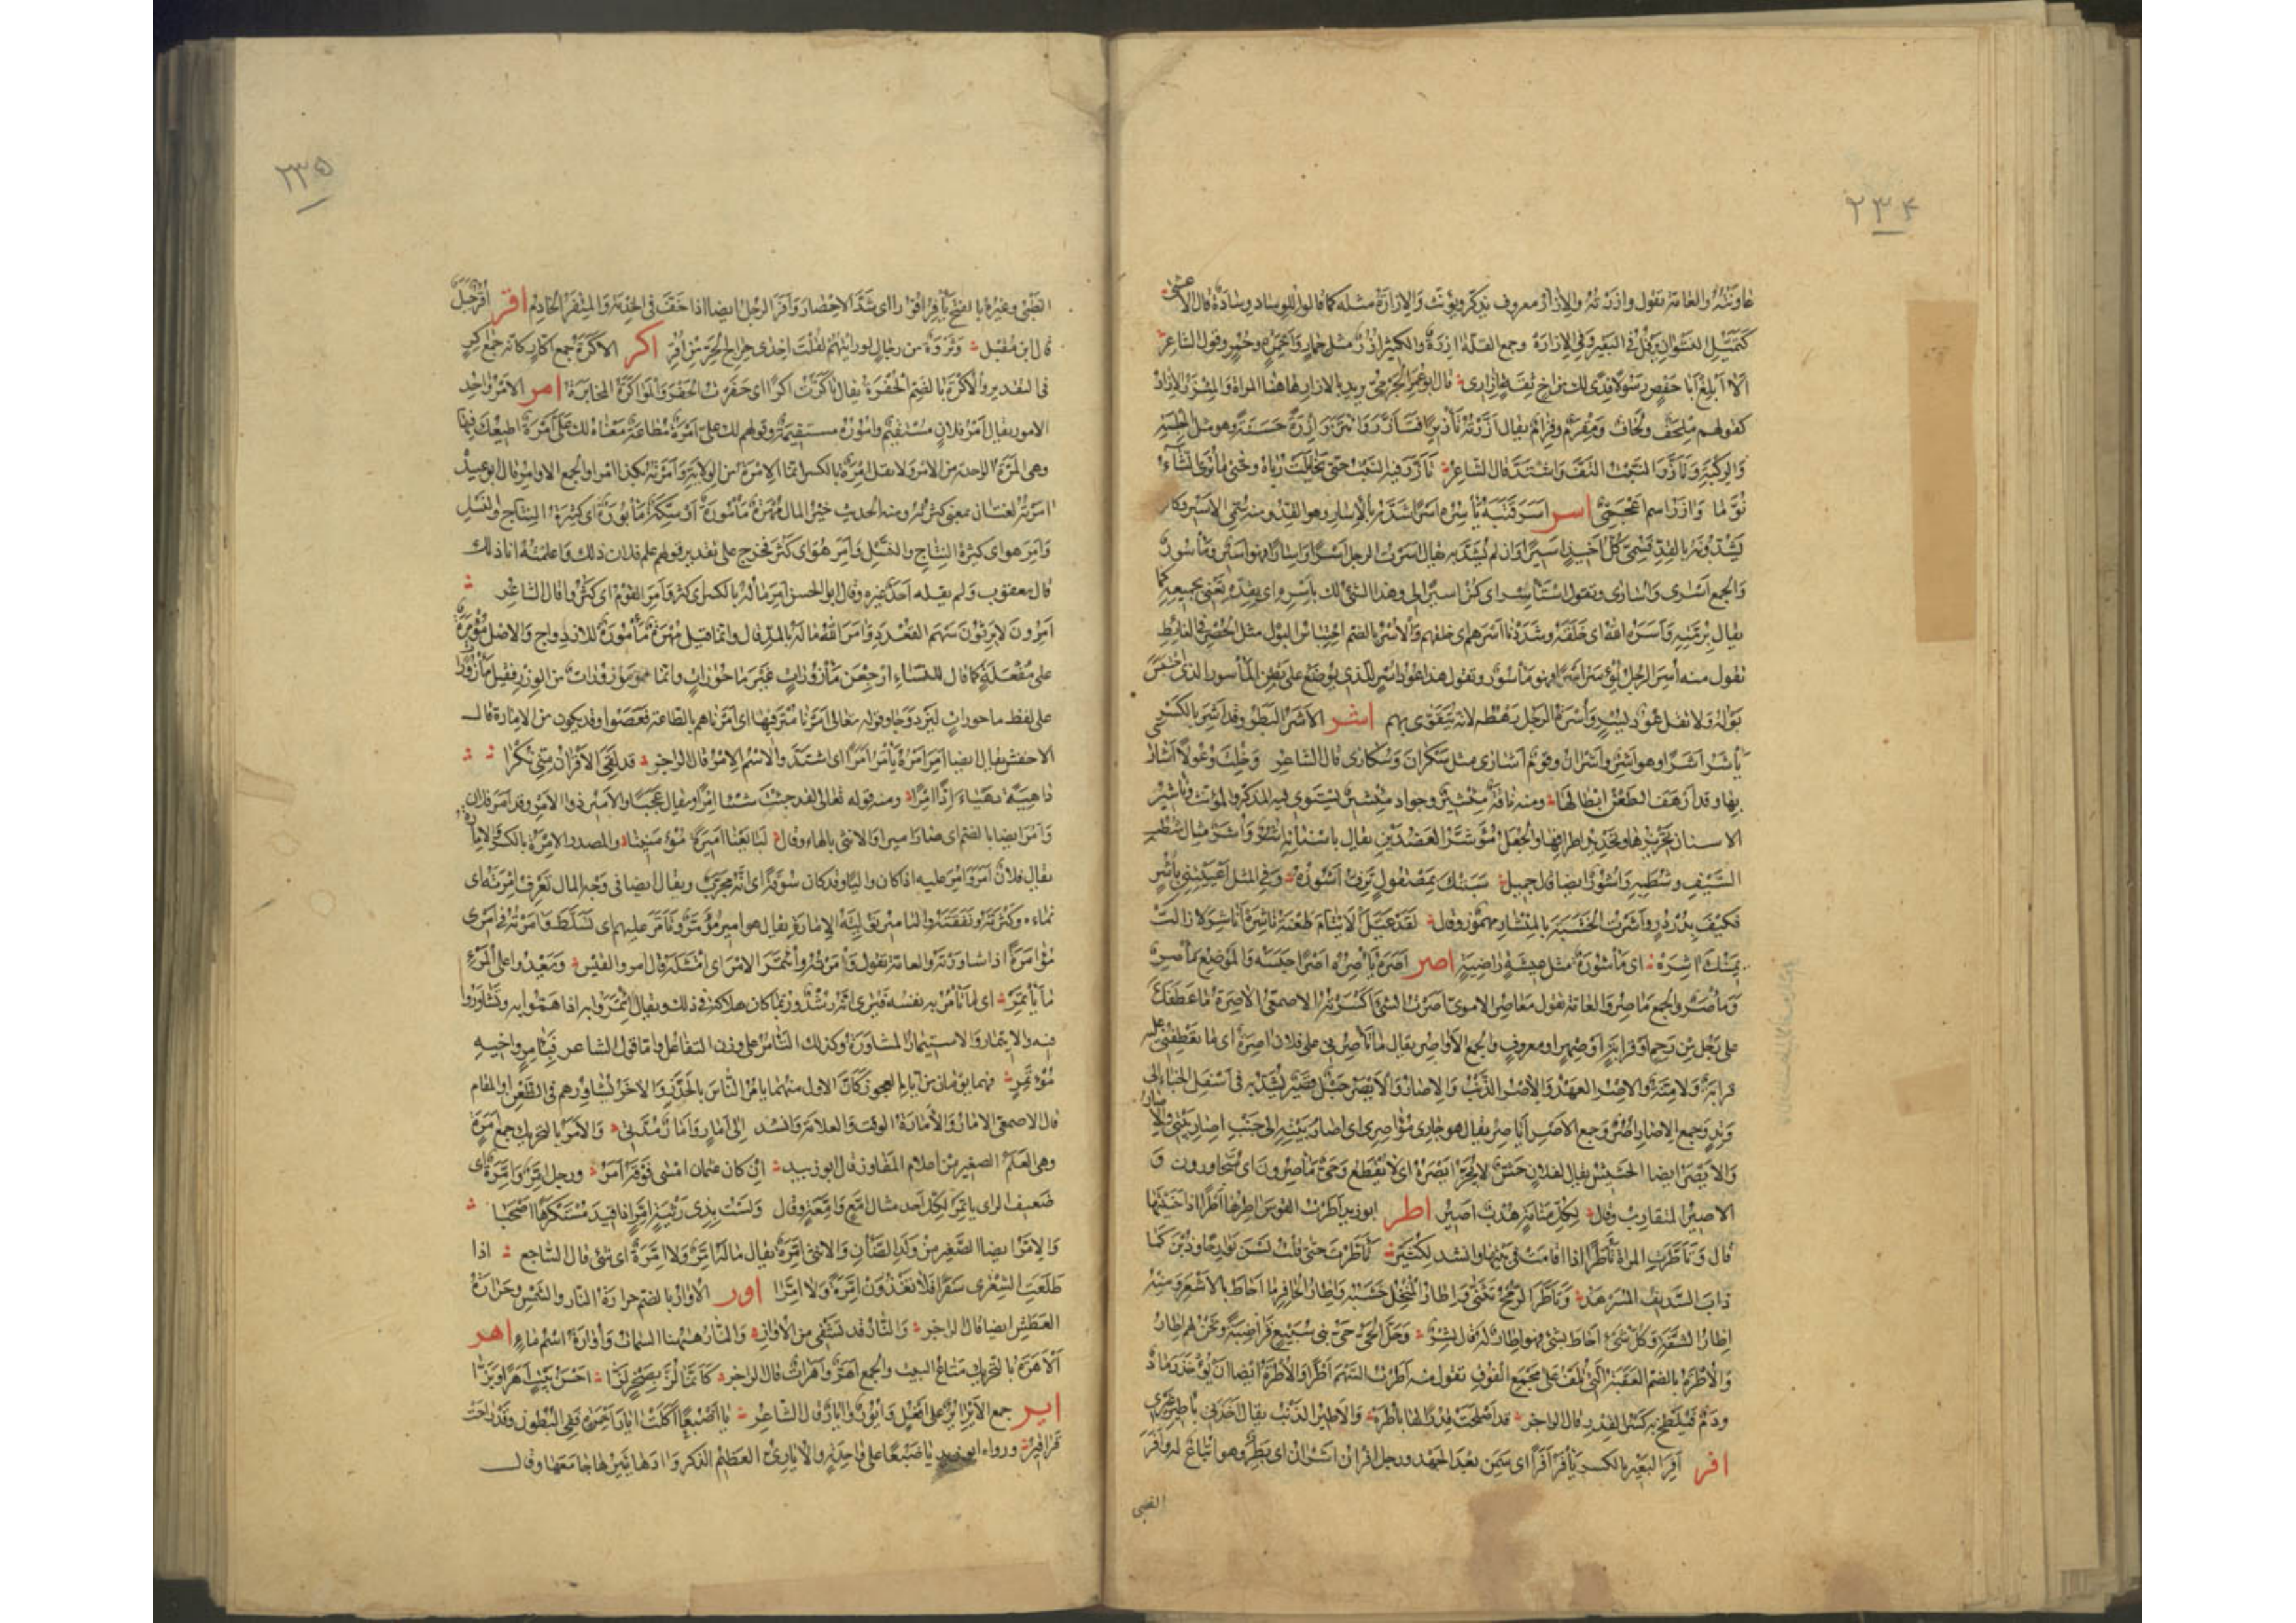 ۲۳۴
عاونته والعامة تقول وازرته والازار معروف يذكر ويؤنث والازارة مثله كما قالوا للوساد وسادة قال الاعشى
كتميل النشوان يرفل فى البقير وفى الازارة وجمع القلة ازرة والكثير ازر مثل خمار واخمرة وخمر وقول الشاعر
الا ابلغ ابا حفص رسولا فدى لك من اخى ثقة ازارى قال ابو عمر الجرمى يريد بالازار هاهنا المراة والمئزر الازار
كقولهم ملحف ولحاف ومقرم وقرام يقال ازرته تأزيرا فتأزر واتزر ازرة حسنة وهو مثل الجلسة
والركبة وتأزر النبت التف واشتد قال الشاعر تأزر فيه النبت حتى تخايلت رباه وحتى ما ترى الشاء
نوما وازر اسم اعجمى اسر اسر قتبه يأسره اسرا شده بالاسار وهو القد ومنه سمى الاسير وكانوا
يشدونه بالقد فسمى كل اخيذ اسيرا وان لم يشد به يقال اسرت الرجل اسرا واسارا فهو اسير ومأسور
والجمع اسرى واسارى وتقول استأسر اى كن اسيرا لى وهذا الشئ لك باسره اى بقده تعنى بجميعه كما
يقال برمته واسره الله اى خلقه وشددنا اسرهم اى خلقهم والاسر بالضم احتباس البول مثل الحصر فى الغائط
تقول منه اسر الرجل يؤسر اسرا فهو مأسور وتقول هذا عود اسر للذى يوضع على بطن المأسور الذى احتبس
بوله ولا تقل عود يسر واسرة الرجل رهطه لانه يتقوى بهم اشر الاشر البطر وقد اشر بالكسر
يأشر اشرا وهو اشر واشران وقوم اشارى مثل سكران وسكارى قال الشاعر وخلت وعولا اشارى
بها وقد ازهف الطعن ابطالها ومنه ناقة مئشير وجواد مئشير يستوى فيه المذكر والمؤنث وتأشير
الاسنان تحزيزها وتحديد اطرافها والجعل مؤشر العضدين يقال باسنانه اشر واشر مثال شطب
السيف وشطبه واشور ايضا قال جميل سبتك بمصقول ترف اشوره وفى المثل اعييتنى باشر
فكيف بدردر واشرت الخشبة بالمئشار مهموز وقال لقد عيل الايتام طعنة ناشره اناشر لا زالت
يمينك اشره اى مأشورة مثل عيشة راضية اصر اصره يأصره اصرا حبسه والموضع مأصر
ومأصر والجمع مآصر والعامة تقول معاصر الاموى اصرت الشئ كسرته الاصمعى الاصرة ما عطفك
على رجل من رحم او قرابة او صهر او معروف والجمع الاواصر يقال ما تأصرنى على فلان اصرة اى ما يعطفنى عليه
قرابة ولا منة والاصر العهد والاصر الذنب والاصار والايصر حبل قصير يشد به فى اسفل الخباء الى
وتد وجمع الاصار اصر وجمع الايصر اياصر يقال هو جارى مؤاصرى اى اصار بيته الى جنب اصار بيتى والاصار
والايصر ايضا الحشيش يقال لفلان محش لا يجز ايصره اى لا يقطع وحى متأصرون اى متجاورون و
الاصير المتقارب وقال لكل منامة هدب اصير اطر ابو زيد اطرت القوس اطرها اطرا اذا حنيتها
قال وتأطرت المراة تأطرا اذا اقامت فى بيتها وانشد لكثير تأطرن حتى قلت لسن بوارحا وذبن كما
ذاب السديف المسرهد وتأطر الرمح تثنى واطار المنخل خشبه واطار الحافر ما احاط بالاشعر ومنه
اطار الشفة وكل شئ احاط بشئ فهو اطار له قال بشر وحل الحى حى بنى سبيع قراضبة ونحن لهم اطار
والاطرة بالضم العقبة التى تلف على مجمع الفوق تقول منه اطرت السهم اطرا والاطرة ايضا ان يؤخذ رماد
ودم فيلطخ به كسر القدر قال الراجز قد اصلحت قدرا لها باطره والاطير الذنب يقال اخذنى باطير غيرى
افر افر البعير بالكسر يأفر افرا اى سمن بعد الجهد ورجل افران اشران اى بطر وهو اتباع له وافر
الظبى
۲۳۵
الظبى وغيره بالفتح يأفر افورا اى شد الاحضار وافر الرجل ايضا اذا خف فى الخدمة والمئفر الخادم اقر اقر جبل
قال ابن مقبل وثروة من رجال لو رايتهم لقلت احدى حراج الجر من اقر اكر الاكرة جمع اكار كانه جمع اكر
فى التقدير والاكرة بالضم الحفرة يقال تأكرت اكرا اى حفرت الحفر والمؤاكرة المخابرة امر الامر واحد
الامور يقال امر فلان مستقيم واموره مستقيمة وقولهم لك على امرة مطاعة معناه لك على امرة اطيعك فيها
وهى المرة الواحدة من الامر ولا تقل امرة بالكسر انما الامرة من الولاية وامرته بكذا امرا والجمع الاوامر قال ابو عبيد
امرته لغتان بمعنى كثرته ومنه الحديث خير المال مهرة مأمورة او سكة مأبورة اى كثيرة النتاج والنسل
وامر هو اى كثر النتاج والنسل وامر هو اى كثر فخرج على تقدير قولهم علم فلان ذلك واعلمته انا ذلك
قال يعقوب ولم يقله احد غيره وقال ابو الحسن امر ماله بالكسر اى كثر وامر القوم اى كثروا قال الشاعر
امرون لا يرثون سهم القعدد وامر الله ماله بالمد قال وانما قيل مهرة مأمورة للازدواج والاصل مؤمرة
على مفعلة كما قال للنساء ارجعن مأزورات غير مأجورات وانما هو موزورات من الوزر فقيل مأزورات
على لفظ مأجورات ليزدوجا وقوله تعالى امرنا مترفيها اى امرناهم بالطاعة فعصوا وقد يكون من الامارة قال
الاخفش يقال ايضا امر امره يأمر امرا اى اشتد والاسم الامر قال الراجز قد لقى الاقران منى نكرا
داهية دهياء ادا امرا ومنه قوله تعالى لقد جئت شيئا امرا ويقال عجبا والامير ذو الامر وقد امر فلان
وامر ايضا بالضم اى صار اميرا والانثى بالهاء وقال لبايعنا اميرة مؤمنينا والمصدر الامرة بالكسر والامارة
يقال فلان امر وامر عليه اذا كان واليا وقد كان سوقة اى انه مجرب ويقال ايضا فى وجه المال تعرف امرته اى
نماءه وكثرته ونفقته والتأمير تولية الامارة يقال هو امير مؤمر وتأمر عليهم اى تسلط وآمرته فى امرى
مؤامرة اذا شاورته والعامة تقول وامرته وأتمر الامر اى امتثله قال امرؤ القيس ويعدو على المرء
ما يأتمر اى ما تأمر به نفسه فيرى انه رشد وربما كان هلاكه فى ذلك ويقال ائتمروا به اذا هموا به وتشاوروا
فيه والايتمار والاستيمار المشاورة وكذلك التآمر على وزن التفاعل واما قول الشاعر وبآمر واخيه
مؤتمر فهما يومان من ايام العجوز كان الاول منهما يأمر الناس بالحذر والآخر يشاورهم فى الظعن او المقام
قال الاصمعى الامار والامارة الوقت والعلامة وانشد الى امار وامار مدتى والامر بالتحريك جمع امرة
وهى العلم الصغير من اعلام المفاوز قال ابو زبيد ان كان عثمان امسى فوقه امر ورجل امر وامرة اى
ضعيف الراى يأتمر لكل احد مثال امع وامعة وقال ولست بذى رثية امر اذا قيد مستكرها اصحبا
والامر ايضا الصغير من ولد الضأن والانثى امرة يقال ما له امر ولا امرة اى شئ قال الساجع اذا
طلعت الشعرى سفرا فلا تغذون امرة ولا امرا اور الاوار بالضم حرارة النار والشمس وحرارة
العطش ايضا قال الراجز والنار قد تشفى من الاوار والنار ههنا السمات واوارة اسم ماء اهر
الاهرة بالتحريك متاع البيت والجمع اهر واهرات قال الراجز كأنما لز بصخر لزا احسن بيت اهرا وبزا
اير جمع الاير آير على افعل وايور وايار قال الشاعر يا اضبعا اكلت ايار احمرة ففى البطون وقد راحت
قراقير ورواه ابو زيد يا ضبعا على واحدة والايارى العظيم الذكر وآرها يئيرها جامعها وقال